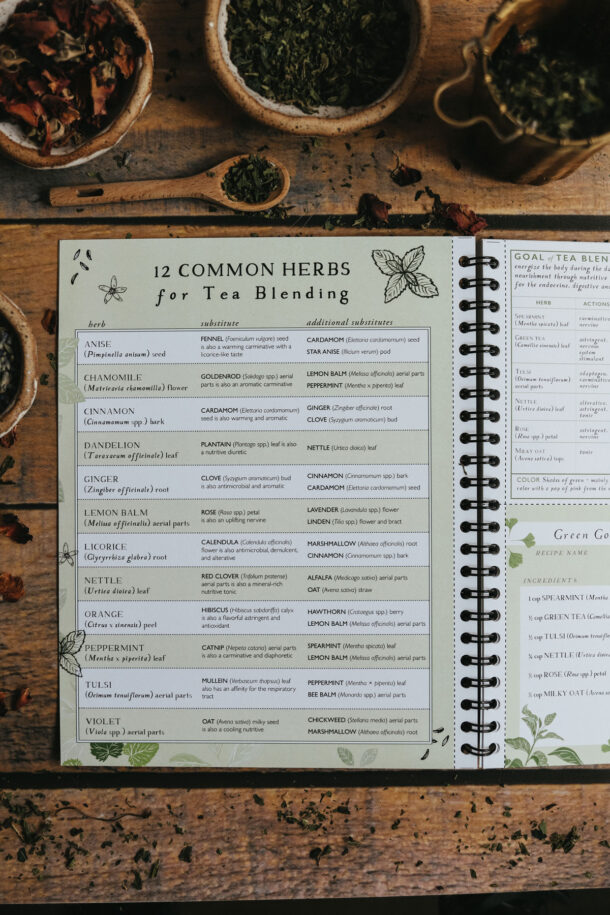 12 COMMON HERBS
for Tea Blending
herb substitute additional substitutes
ANISE
(Pimpinella anisum) seed
FENNEL (Foeniculum vulgare) seed
is also a warming carminative with a
licorice-like taste
CARDAMOM (Elettaria cardamomum) seed
STAR ANISE (Illicium verum) pod
CHAMOMILE
(Matricaria chamomilla) flower
GOLDENROD (Solidago spp.) aerial
parts is also an aromatic carminative
LEMON BALM (Melissa officinalis) aerial parts
PEPPERMINT (Mentha × piperita) leaf
CINNAMON
(Cinnamomum spp.) bark
CARDAMOM (Elettaria cardamomum)
seed is also warming and aromatic
GINGER (Zingiber officinale) root
CLOVE (Syzygium aromaticum) bud
DANDELION
(Taraxacum officinale) leaf
PLANTAIN (Plantago spp.) leaf is also
a nutritive diuretic
NETTLE (Urtica dioica) leaf
GINGER
(Zingiber officinale) root
CLOVE (Syzygium aromaticum) bud
is also antimicrobial and aromatic
CINNAMON (Cinnamomum spp.) bark
CARDAMOM (Elettaria cardamomum) seed
LEMON BALM
(Melissa officinalis) aerial parts
ROSE (Rosa spp.) petal
is also an uplifting nervine
LAVENDER (Lavandula spp.) flower
LINDEN (Tilia spp.) flower and bract
LICORICE
(Glycyrrhiza glabra) root
CALENDULA (Calendula officinalis)
flower is also antimicrobial, demulcent,
and alterative
MARSHMALLOW (Althaea officinalis) root
CINNAMON (Cinnamomum spp.) bark
NETTLE
(Urtica dioica) leaf
RED CLOVER (Trifolium pratense)
aerial parts is also a mineral-rich
nutritive tonic
ALFALFA (Medicago sativa) aerial parts
OAT (Avena sativa) straw
ORANGE
(Citrus x sinensis) peel
HIBISCUS (Hibiscus sabdariffa) calyx
is also a flavorful astringent and
antioxidant
HAWTHORN (Crataegus spp.) berry
LEMON BALM (Melissa officinalis) aerial parts
PEPPERMINT
(Mentha × piperita) leaf
CATNIP (Nepeta cataria) aerial parts
is also a carminative and diaphoretic
SPEARMINT (Mentha spicata) leaf
LEMON BALM (Melissa officinalis) aerial parts
TULSI
(Ocimum tenuiflorum) aerial parts
MULLEIN (Verbascum thapsus) leaf
also has an affinity for the respiratory
tract
PEPPERMINT (Mentha × piperita) leaf
BEE BALM (Monarda spp.) aerial parts
VIOLET
(Viola spp.) aerial parts
OAT (Avena sativa) milky seed
is also a cooling nutritive
CHICKWEED (Stellaria media) aerial parts
MARSHMALLOW (Althaea officinalis) root
GOAL of TEA BLEN
energize the body during the da
nourishment through nutritive
for the endocrine, digestive an
HERB ACTIONS
SPEARMINT
(Mentha spicata) leaf
carminative
nervine
GREEN TEA
(Camellia sinensis) leaf
astringent,
nervous
system
stimulant
TULSI
(Ocimum tenuiflorum)
aerial parts
adaptogen,
carminative
nervine
NETTLE
(Urtica dioica) leaf
alterative,
astringent,
tonic
ROSE
(Rosa spp.) petal
astringent,
nervine
MILKY OAT
(Avena sativa) tops
tonic
COLOR Shades of green - mainly
color with a pop of pink from the
Green Go
RECIPE NAME
INGREDIENTS
1 cup SPEARMINT (Mentha
½ cup GREEN TEA (Camellia
½ cup TULSI (Ocimum tenuiflorum
¼ cup NETTLE (Urtica dioica)
⅛ cup ROSE (Rosa spp.) petal
⅛ cup MILKY OAT (Avena